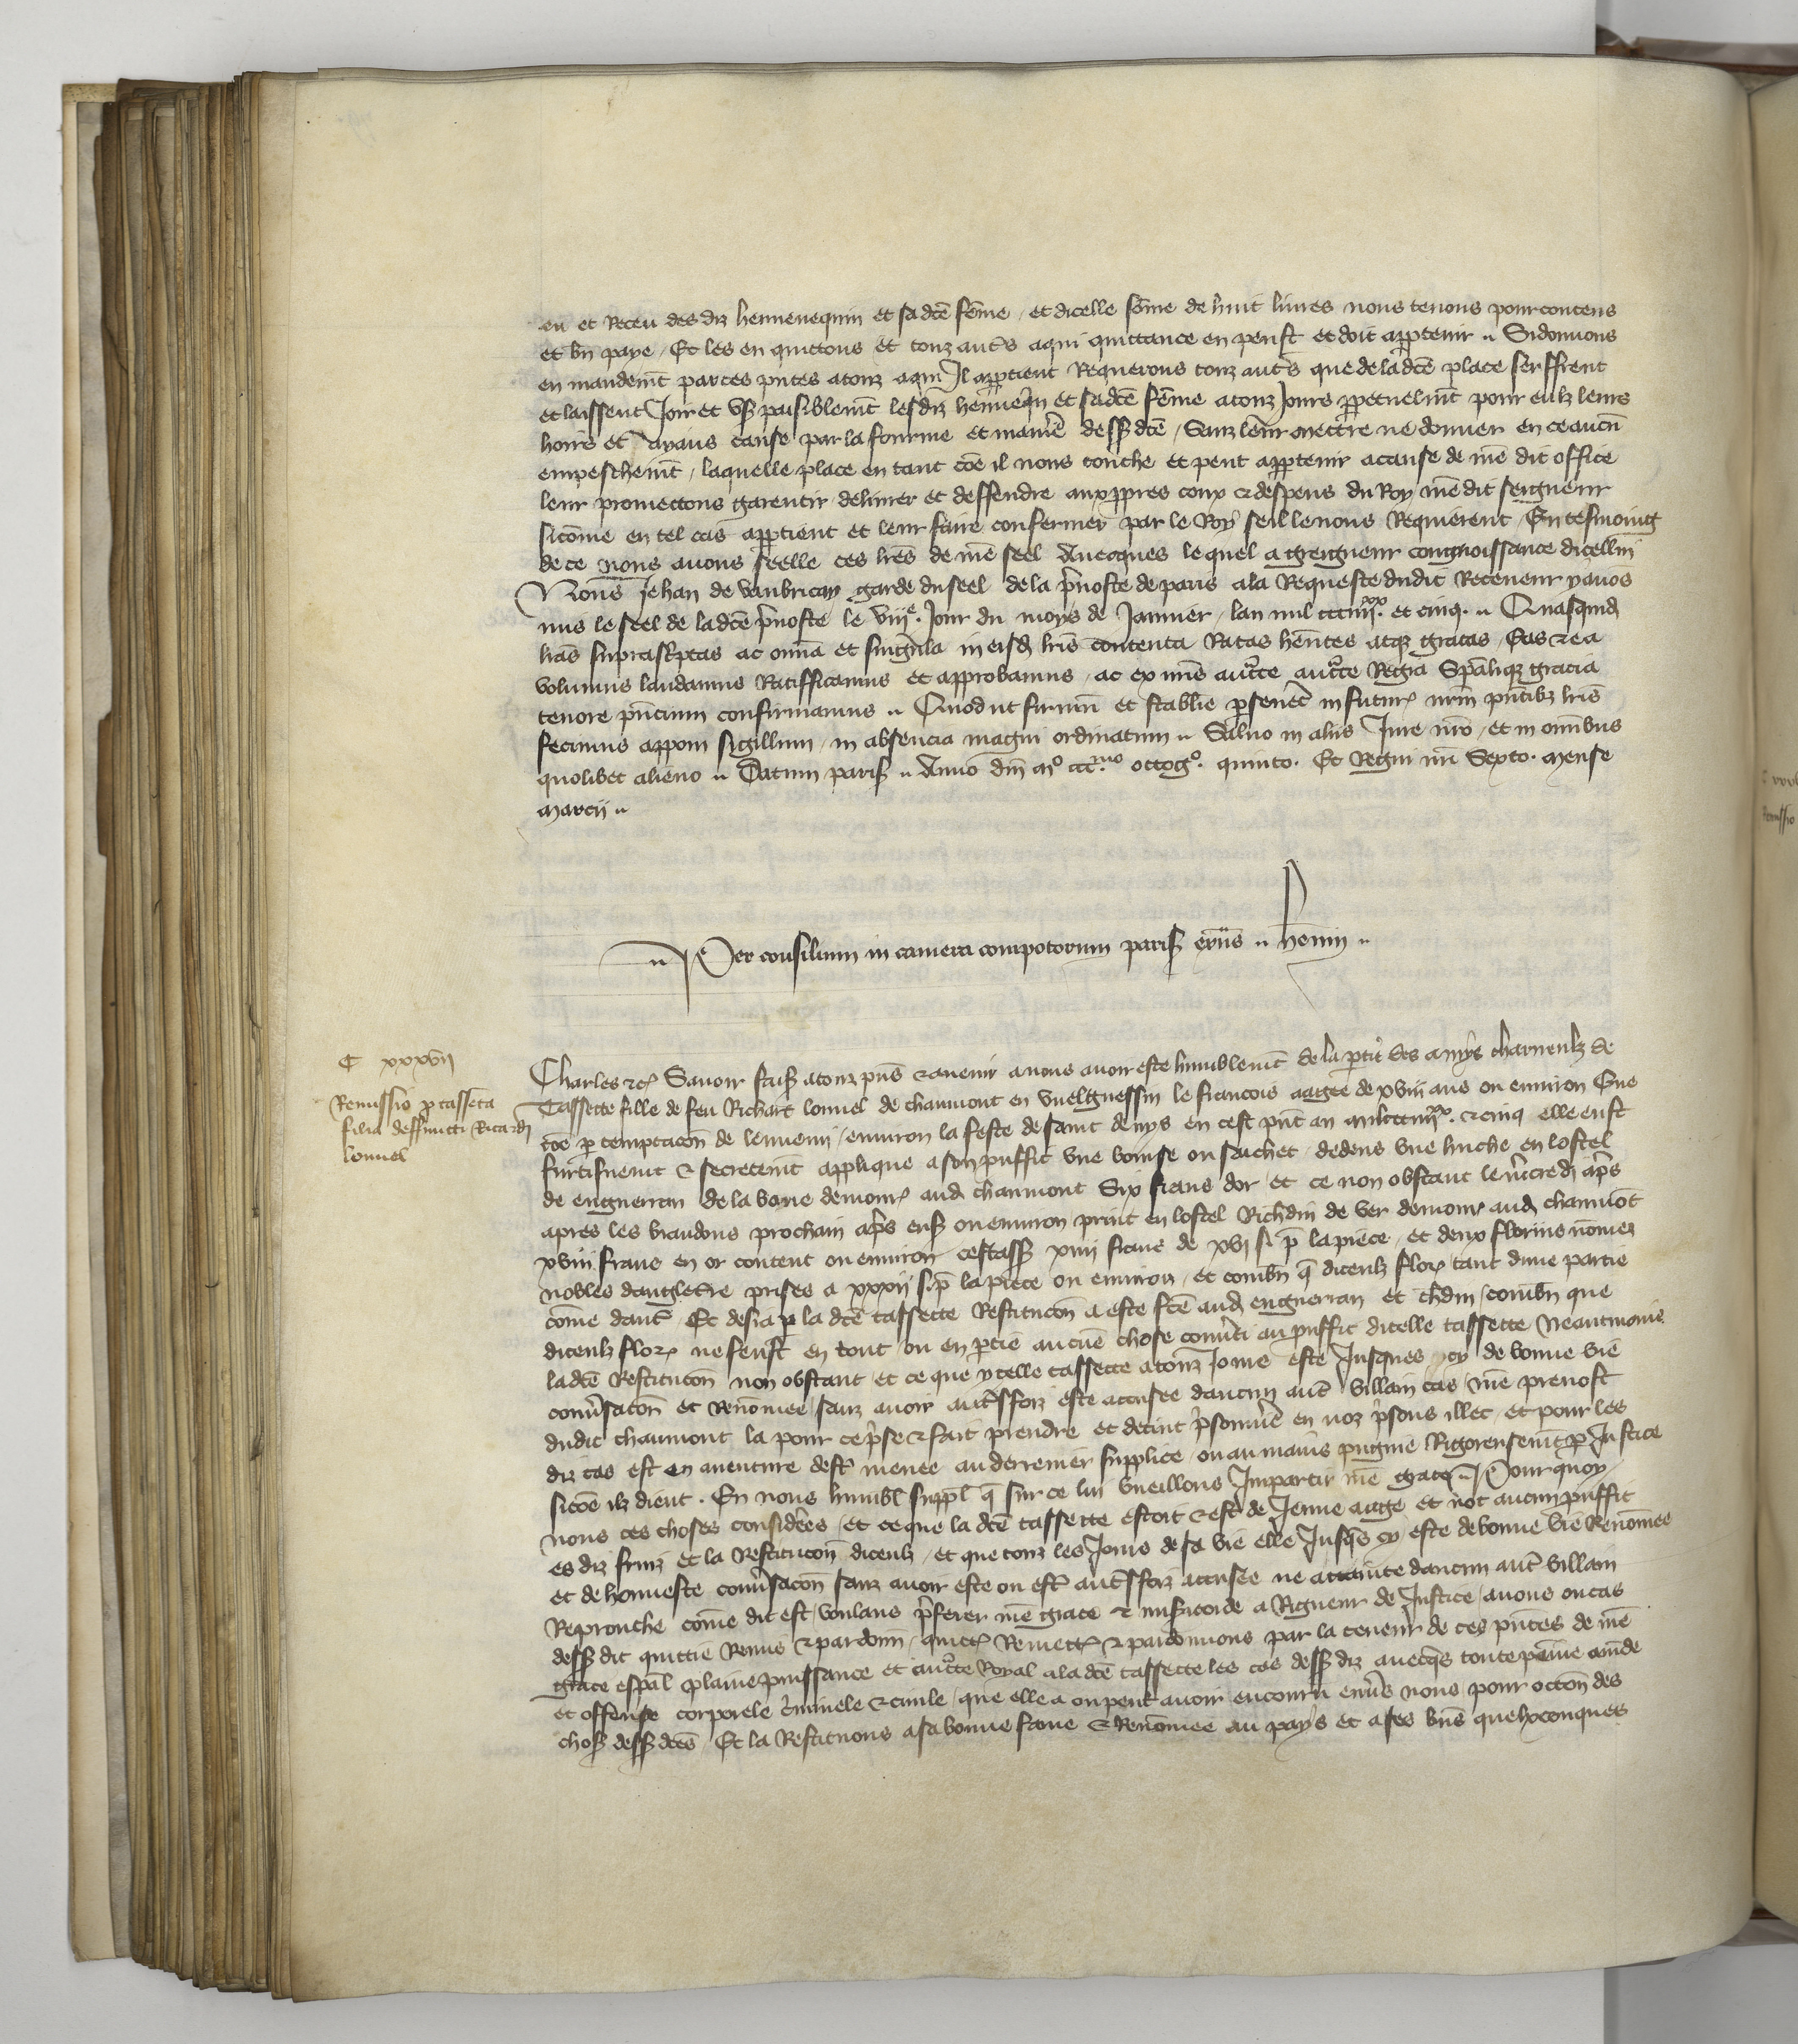 eu et Receu des diz hennequin et sa dce feme / et dicelle some de huit liures nous tenons pour contens
et bn paye / Et les en quittons et touz autres a qui quittance en peust et doit appartenir Si donnons
en mandemt par ces pntes a touz a qui Il appartient Requerons touz autres que de la dce place seuffrent
et laissent Joir et user paisiblemt les diz hennequin et sa dce feme a touz Jours perpetuelmt pour eulz leurs
hoirs et ayans cause par la fourme et maniere dessus dce / Sanz leur mectre ne donner en ce aucun
empeschemt / laquelle place en tant coe il nous touche et peut appartenir a cause de nre dit office
leur promectons garentir deliurer et deffendre aux propres coux & despens du Roy nre dit seigneur
sicome en tel cas appartient et leur faire confermer par le Roy se Il le nous Requierent / En tesmoing
de ce nous auons seelle ces lres de nre seel Auecques le quel a greigneur congnoissance dicellui
Nous Jehan de vaubricay garde du seel de la preuoste de paris a la Requeste dudit Receueur y auons
mis le seel de la dce preuoste le viije Jour du moys de Januier / lan mil ccc iiijxx et cinq. Quasquid
lras suprascriptas ac omnia et singula in eisd lris contenta Ratas hentes atque gratas / Eas & ea
volumus laudamus Ratifficamus et approbamus / ac ex nris aucte aucte Regia Spalique gracia
tenore pncium confirmamus Quod ut firmum et stabile perseueret in futur nrm pntibus lris
fecimus apponi sigillum / in absencia magni ordinatum Saluo in aliis Jure nro / et in omibus
quolibet alieno Datum paris Anno dni mo ccc.mo octogo. quinto. Et Regni nri Sexto. mense
marcii
Per consilium in camera compotorum paris exns henin
C xxxvii
Remissio pro tasseta
filia deffuncti Ricardi
louuel
Charles &c Sauoir faiss a touz pns & auenir a nous auoir este humblemt de la partie des amys charnelz de
Tassette fille de feu Richart louuel de chaumont en Vuelguessin le francois aagee de xviii ans ou enuiron Que
coe par temptacon de lennemi / enuiron la feste de saint denys en cest pnt an mil ccc iiijxx. & cinq elle eust
furtiuemt & secretemt applique a son puffit vne bourse ou sachet / dedens vne huche en lostel
de enguerran de la bone demour aud chaumont Six frans dor / et ce non obstant le mercredi apres
apres les brandons prochain apres ens ou enuiron print en lostel Richdin de ver demour aud chaumot
xviii frans en or content ou enuiron cestass xiiij frans de xvj s p la piece / et deux florins nomez
nobles dangleterre prises a xxxij s. p la piece ou enuiron / et combn que diceulz flor tant dune partie
come dautre Et desia par la dce tassette Restitucon a este fce aud enguerran et chdin / combn que
diceulz flor ne feust en tout ou en partie aucune chose conuerti au puffit dicelle tassette Neantmoins
la dce Restitucon non obstant / et ce que ycelle tassette a touz Jours este Jusques cy de bonne vie
conuersacon et Renomee / sanz auoir autresfoiz este accusee daucun autre villain cas / nre preuost
dudit chaumont la pour ce prise & fait prendre et detient prisonniere en noz prisons illec / et pour les
diz cas est en auenture destre menee au derrenier supplice / ou au mains pugnie Rigoreusemt par Justice
sicoe ilz dient. En nous humbl suppl que sur ce lui vueillons Impartir nre grace Pourquoy
nous ces choses considerees / et ce que la dce tassette estoit & est de Jeune aage et not aucun puffit
es diz furz et la Restitucon diceulz / et que touz les Jours de sa vie elle Jusqs cy este de bonne vie Renomee
et de honneste conuersacon sanz auoir este ou estre autresfoiz accusee ne attainte daucun autre villain
Reprouche come dit est / voulans preferer nre grace & misericorde a Rigueur de Justice / auons ou cas
dess dit quittie Remis & pardonn / quitt Remett & pardonnons par la teneur de ces pntes de nre
grace espal plaine puissance et aucte Royal a la dce tassette les cas dess diz auecqs toute peinne amde
et offense corporele criminele & ciuile / que elle a ou peut auoir encouru enuers nous / pour occon des
chos dess dces / Et la Restituons a sa bonne fame & Renomee au pays et a ses bns quelxconques